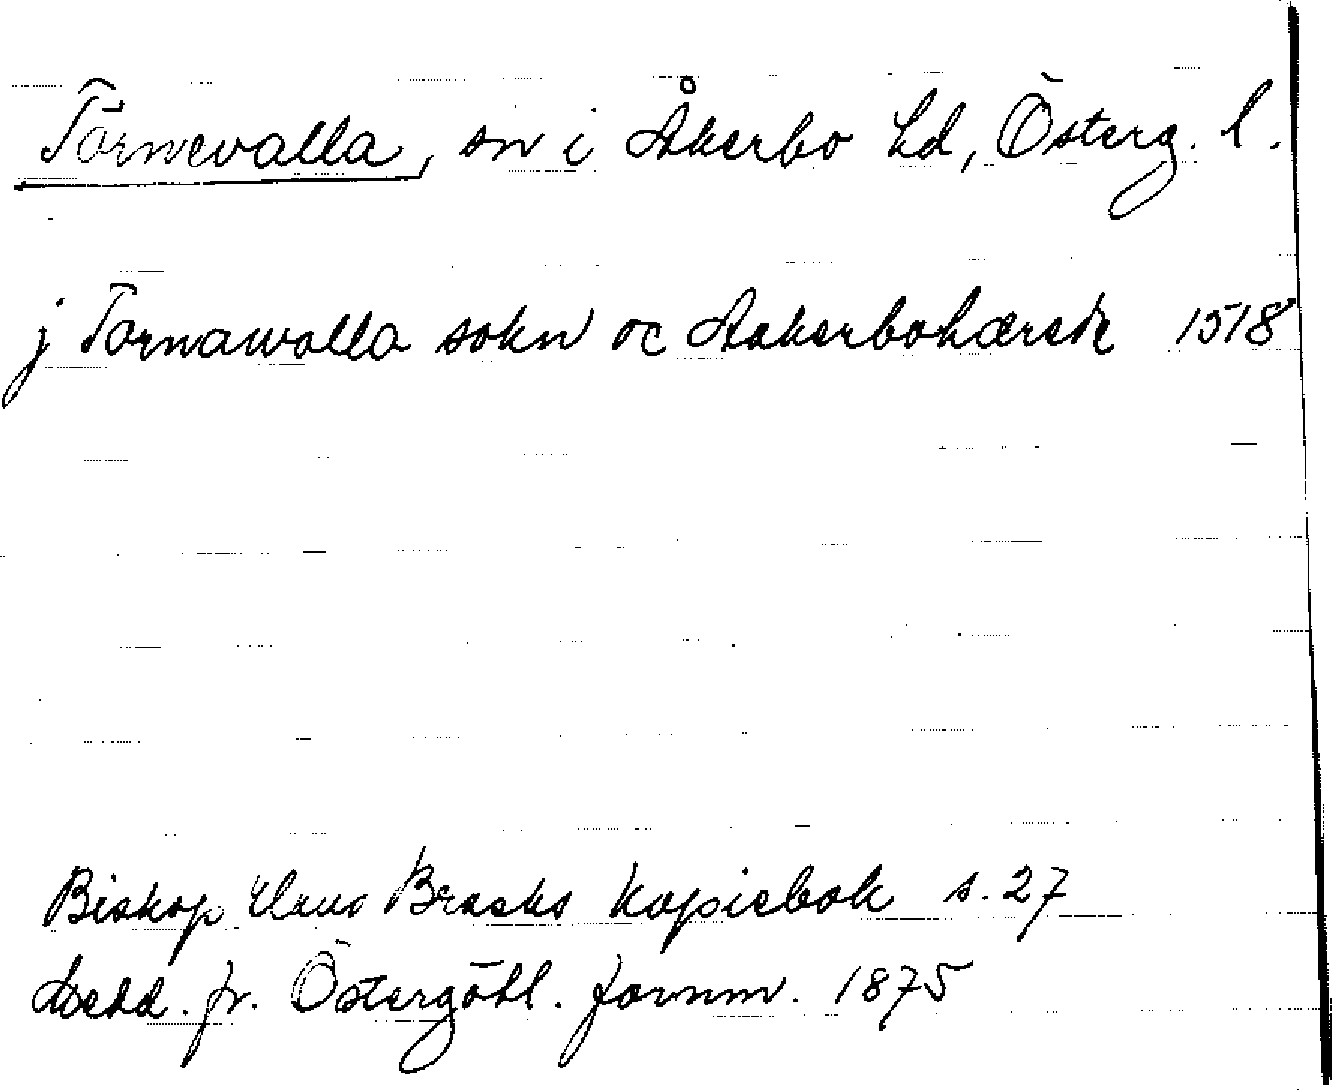 Törnevalla, sn i Åkerbo hd, Österg. l.
j Tornawalla sokn oc Aakerbohæredz 1518
Biskop Hans Brasks kopiebok s. 27
Medd. fr. Östergötl. fornm. 1875